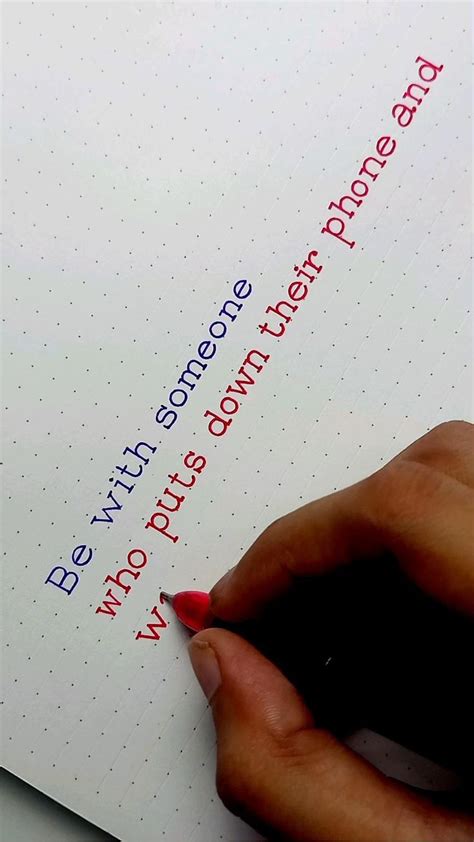 Be with someone
who puts down their phone and
w